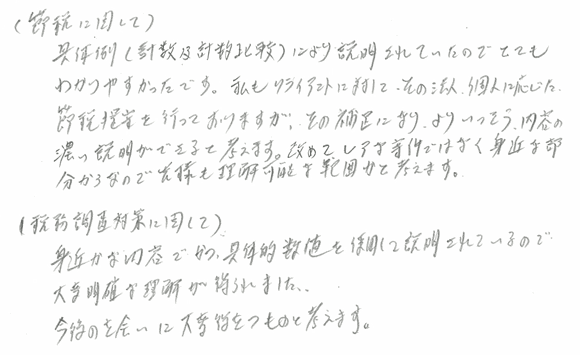 (節税に関して)
具体例(計数及計数比較)により説明されていたのでとても
わかりやすかったです。私もクライアントに対して、その法人、個人に応じた
節税提案を行っておりますが、その補足になり、よりいっそう、内容の
濃い説明ができると考えます。改めてレアな事件ではなく身近な部
分からなので皆様も理解可能な範囲かと考えます。
(税務調査対策に関して)
身近かな内容でかつ、具体的数値を使用して説明されているので
大変明確な理解が得られました。
今後の立会いに大変役立つものと考えます。